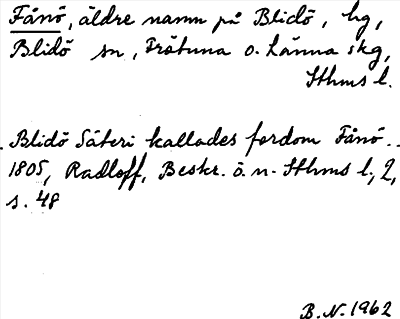 Fånö, äldre namn på Blidö, hg,
Blidö sn, Frötuna o. Länna skg,
Sthms l.
Blidö Säteri kallades fordom Fånö..
1805, Radloff, Beskr. ö. n. Sthms l, 2,
s. 48
B.N. 1962